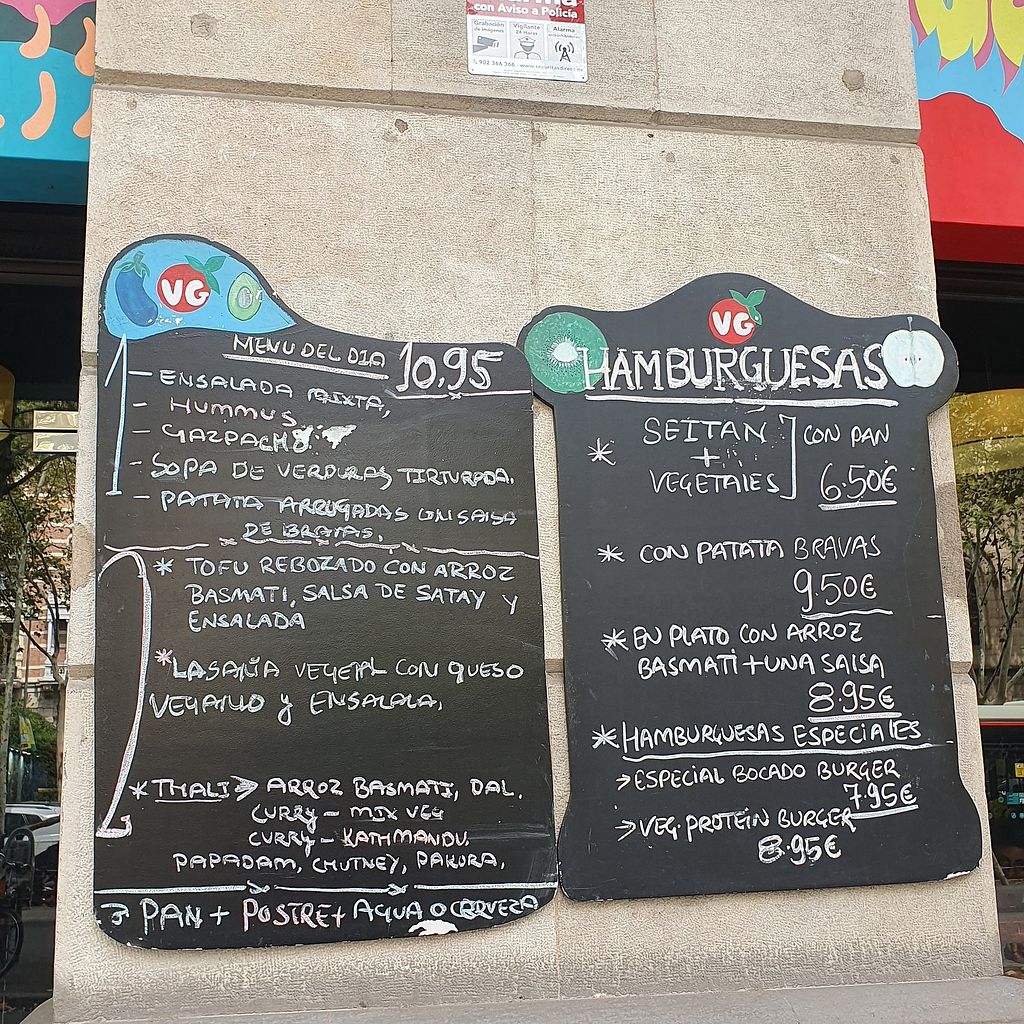 con Aviso a Policía
Grabación de imágenes
Vigilante 24 Horas
Alarma
902 366 366 - www.securitasdirect.es
VG
MENU DEL DIA 10,95
1
- ENSALADA MIXTA,
- HUMMUS
- GAZPACHO
- SOPA DE VERDURAS TIRTURADA.
- PATATA ARRUGADAS CON SALSA
DE BRAVAS.
2
* TOFU REBOZADO CON ARROZ
BASMATI, SALSA DE SATAY Y
ENSALADA
* LASAÑA VEGETAL CON QUESO
VEGANO y ENSALADA,
* THALI → ARROZ BASMATI, DAL.
CURRY - MIX VEG
CURRY - KATHMANDU.
PAPADAM, CHUTNEY, PAKORA,
3 PAN + POSTRE + AGUA O CERVEZA
VG
HAMBURGUESAS
* SEITAN
+
VEGETALES
CON PAN
6.50€
* CON PATATA BRAVAS
9.50€
* EN PLATO CON ARROZ
BASMATI + UNA SALSA
8.95€
* HAMBURGUESAS ESPECIALES
→ ESPECIAL BOCADO BURGER
7.95€
→ VEG PROTEIN BURGER
8.95€